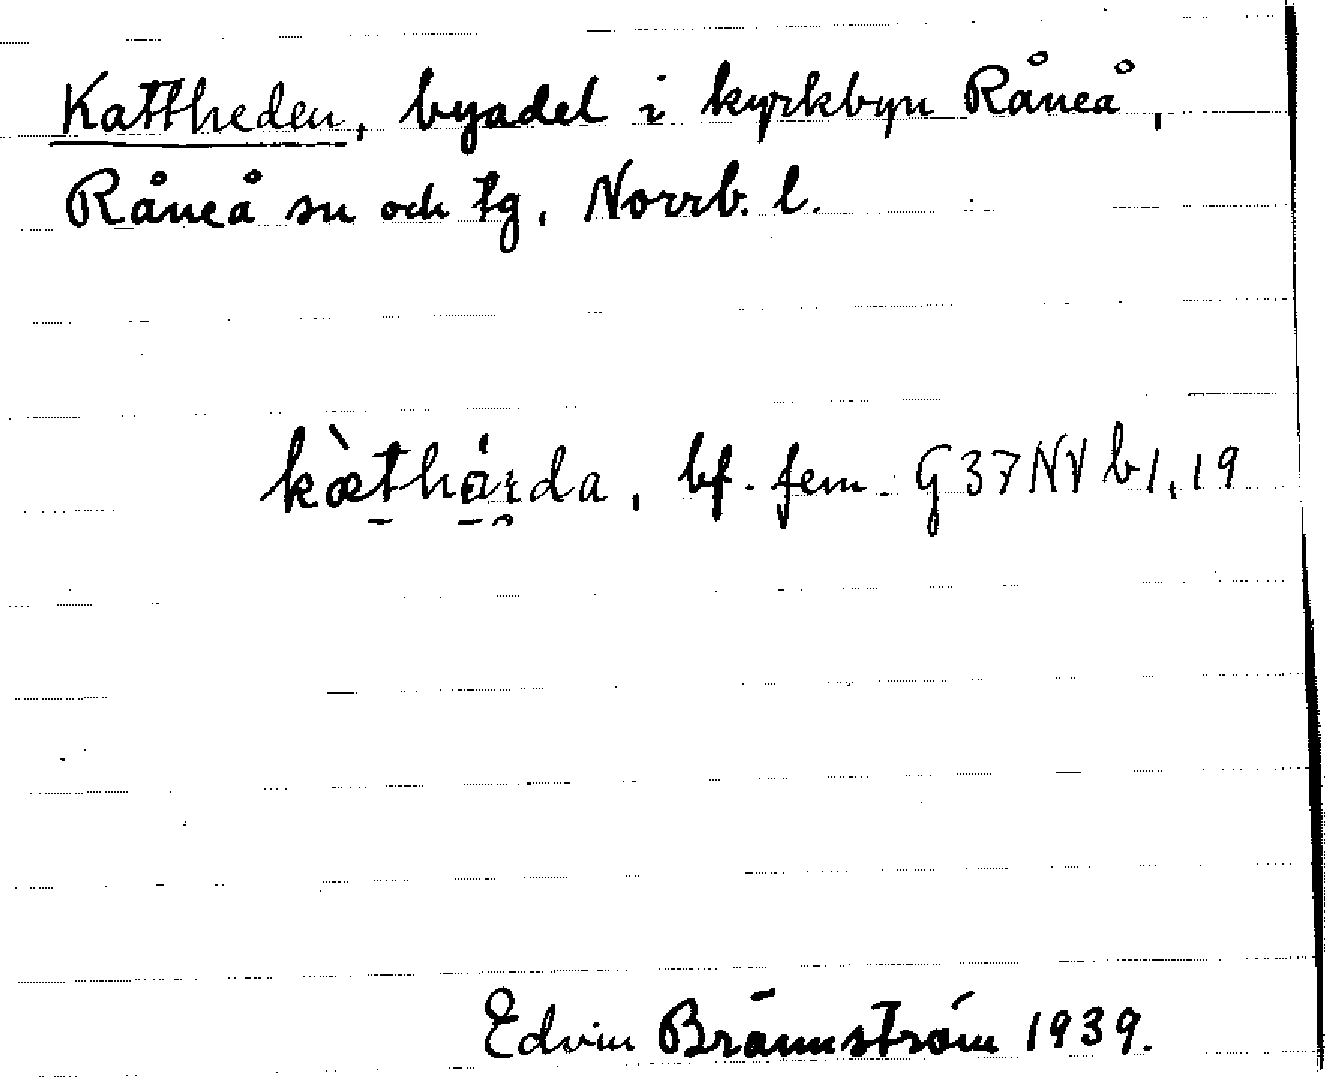 Kattheden, byadel i kyrkbyn Råneå,
Råneå sn och tg, Norrb. l.
kæ̀thárda, bf. fem. G37NV b1,19
Edvin Brännström 1939.